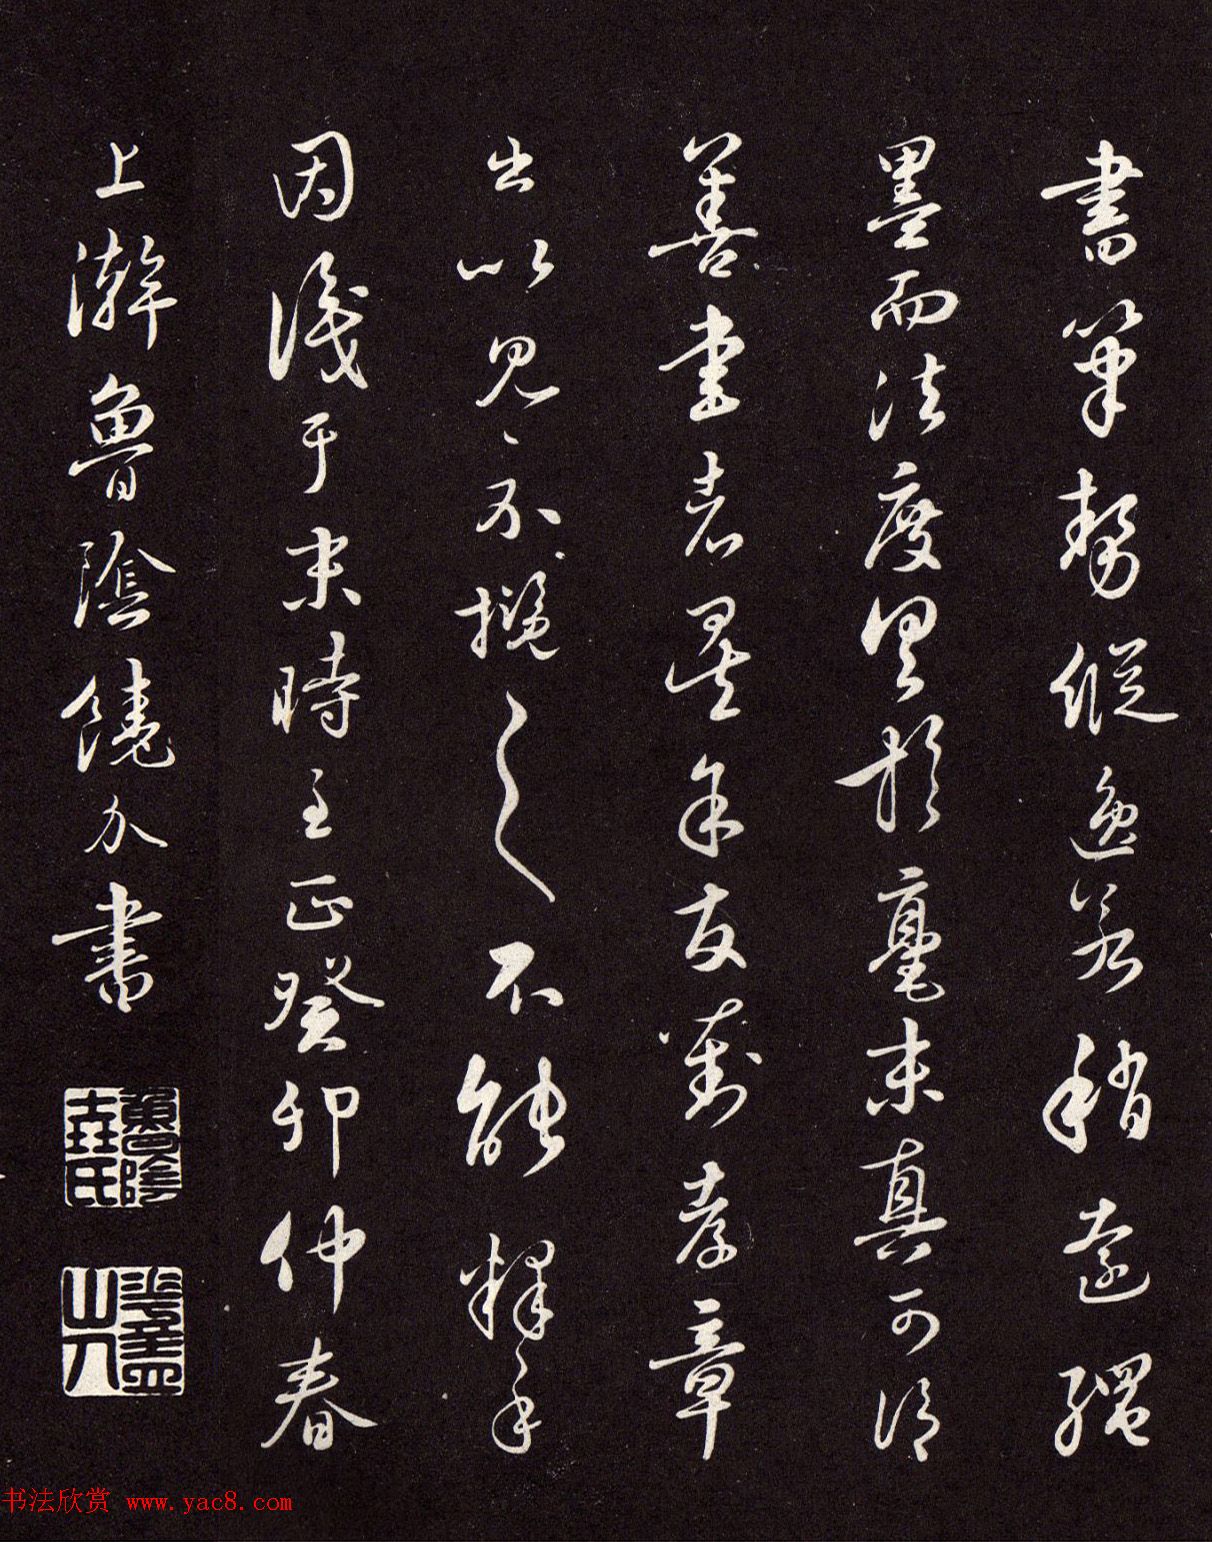 書筆勢縱逸若稍遠繩
墨而法度異於毫末真可謂
善書者是余友劉孝章
出以見示攬之不能釋手
因識于末時至正癸卯仲春
上澣魯陰饒介書
書法欣赏 www.yac8.com